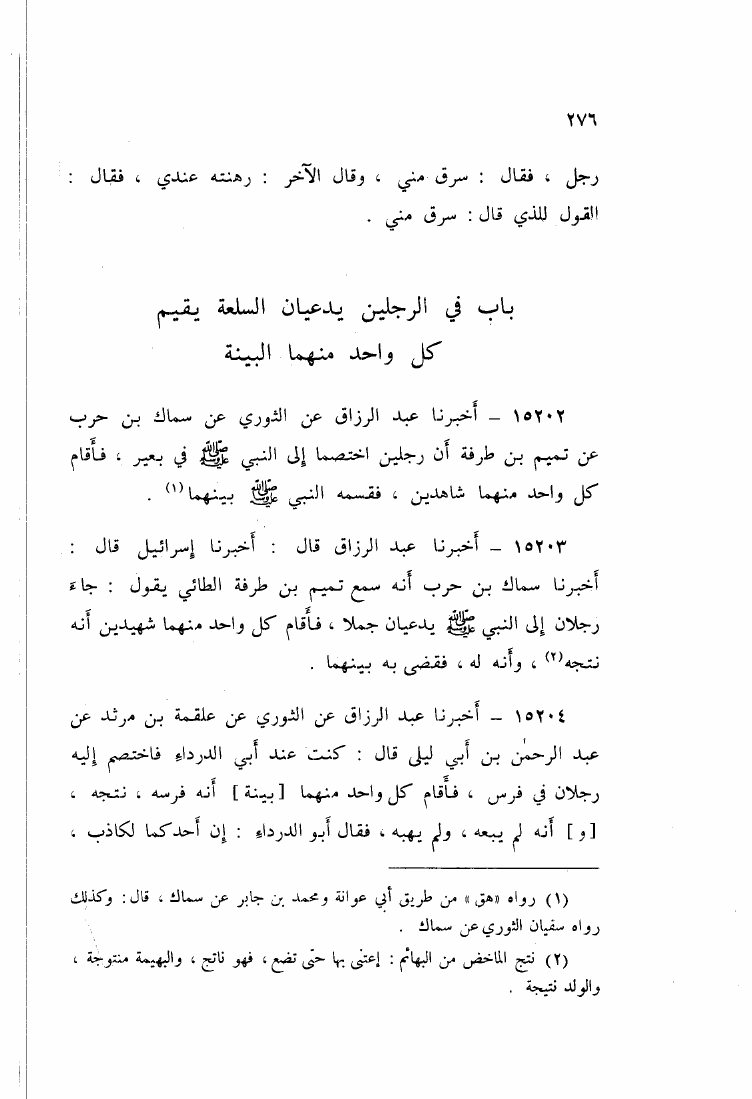 ٢٧٦
رجل ، فقال : سرق مني ، وقال الآخر : رهنته عندي ، فقال :
القول للذي قال : سرق مني .
باب في الرجلين يدعيان السلعة يقيم
كل واحد منهما البينة
١٥٢٠٢ – أخبرنا عبد الرزاق عن الثوري عن سماك بن حرب
عن تميم بن طرفة أن رجلين اختصما إلى النبي ﷺ في بعير ، فأقام
كل واحد منهما شاهدين ، فقسمه النبي ﷺ بينهما (١) .
١٥٢٠٣ – أخبرنا عبد الرزاق قال : أخبرنا إسرائيل قال :
أخبرنا سماك بن حرب أنه سمع تميم بن طرفة الطائي يقول : جاءَ
رجلان إلى النبي ﷺ يدعيان جملا ، فأقام كل واحد منهما شهيدين أنه
نتجه (٢) ، وأنه له ، فقضى به بينهما .
١٥٢٠٤ – أخبرنا عبد الرزاق عن الثوري عن علقمة بن مرثد عن
عبد الرحمٰن بن أبي ليلى قال : كنت عند أبي الدرداءِ فاختصم إليه
رجلان في فرس ، فأقام كل واحد منهما [بينة] أنه فرسه ، نتجه ،
[و] أنه لم يبعه ، ولم يهبه ، فقال أبو الدرداءِ : إن أحدكما لكاذب ،
(١) رواه «هق» من طريق أبي عوانة ومحمد بن جابر عن سماك ، قال : وكذلك
رواه سفيان الثوري عن سماك .
(٢) نتج الماخض من البهائم : إعتنى بها حتى تضع ، فهو ناتج ، والبهيمة منتوجة ،
والولد نتيجة .